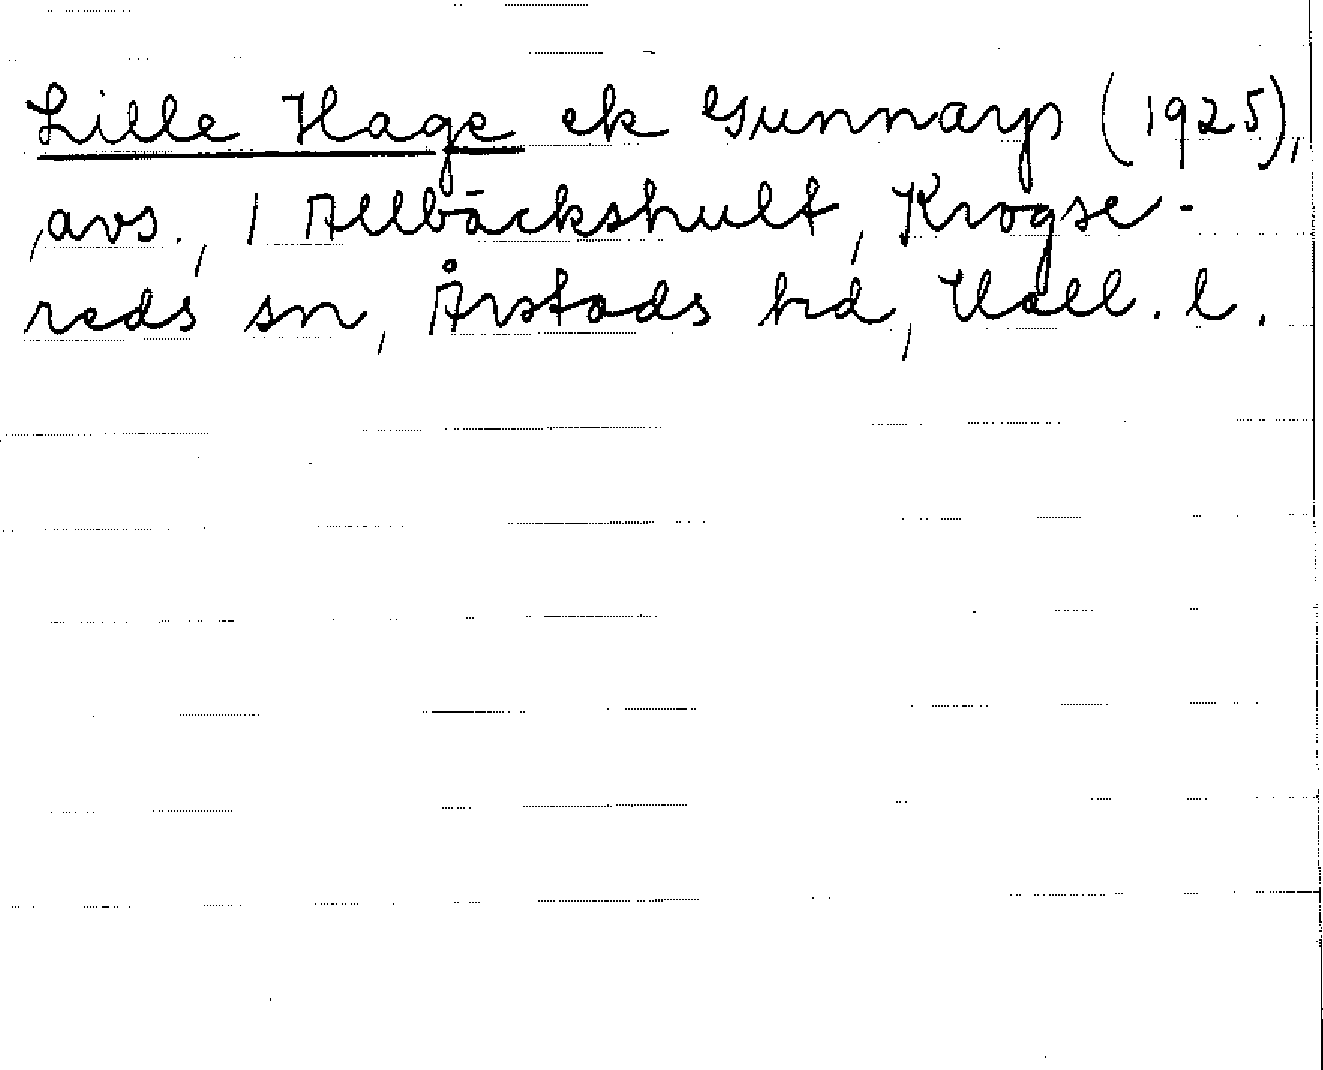 Lille Hage ek Gunnarp (1925),
avs., 1 Allbäckshult, Krogse-
reds sn, Årstads hd, Hall. l.